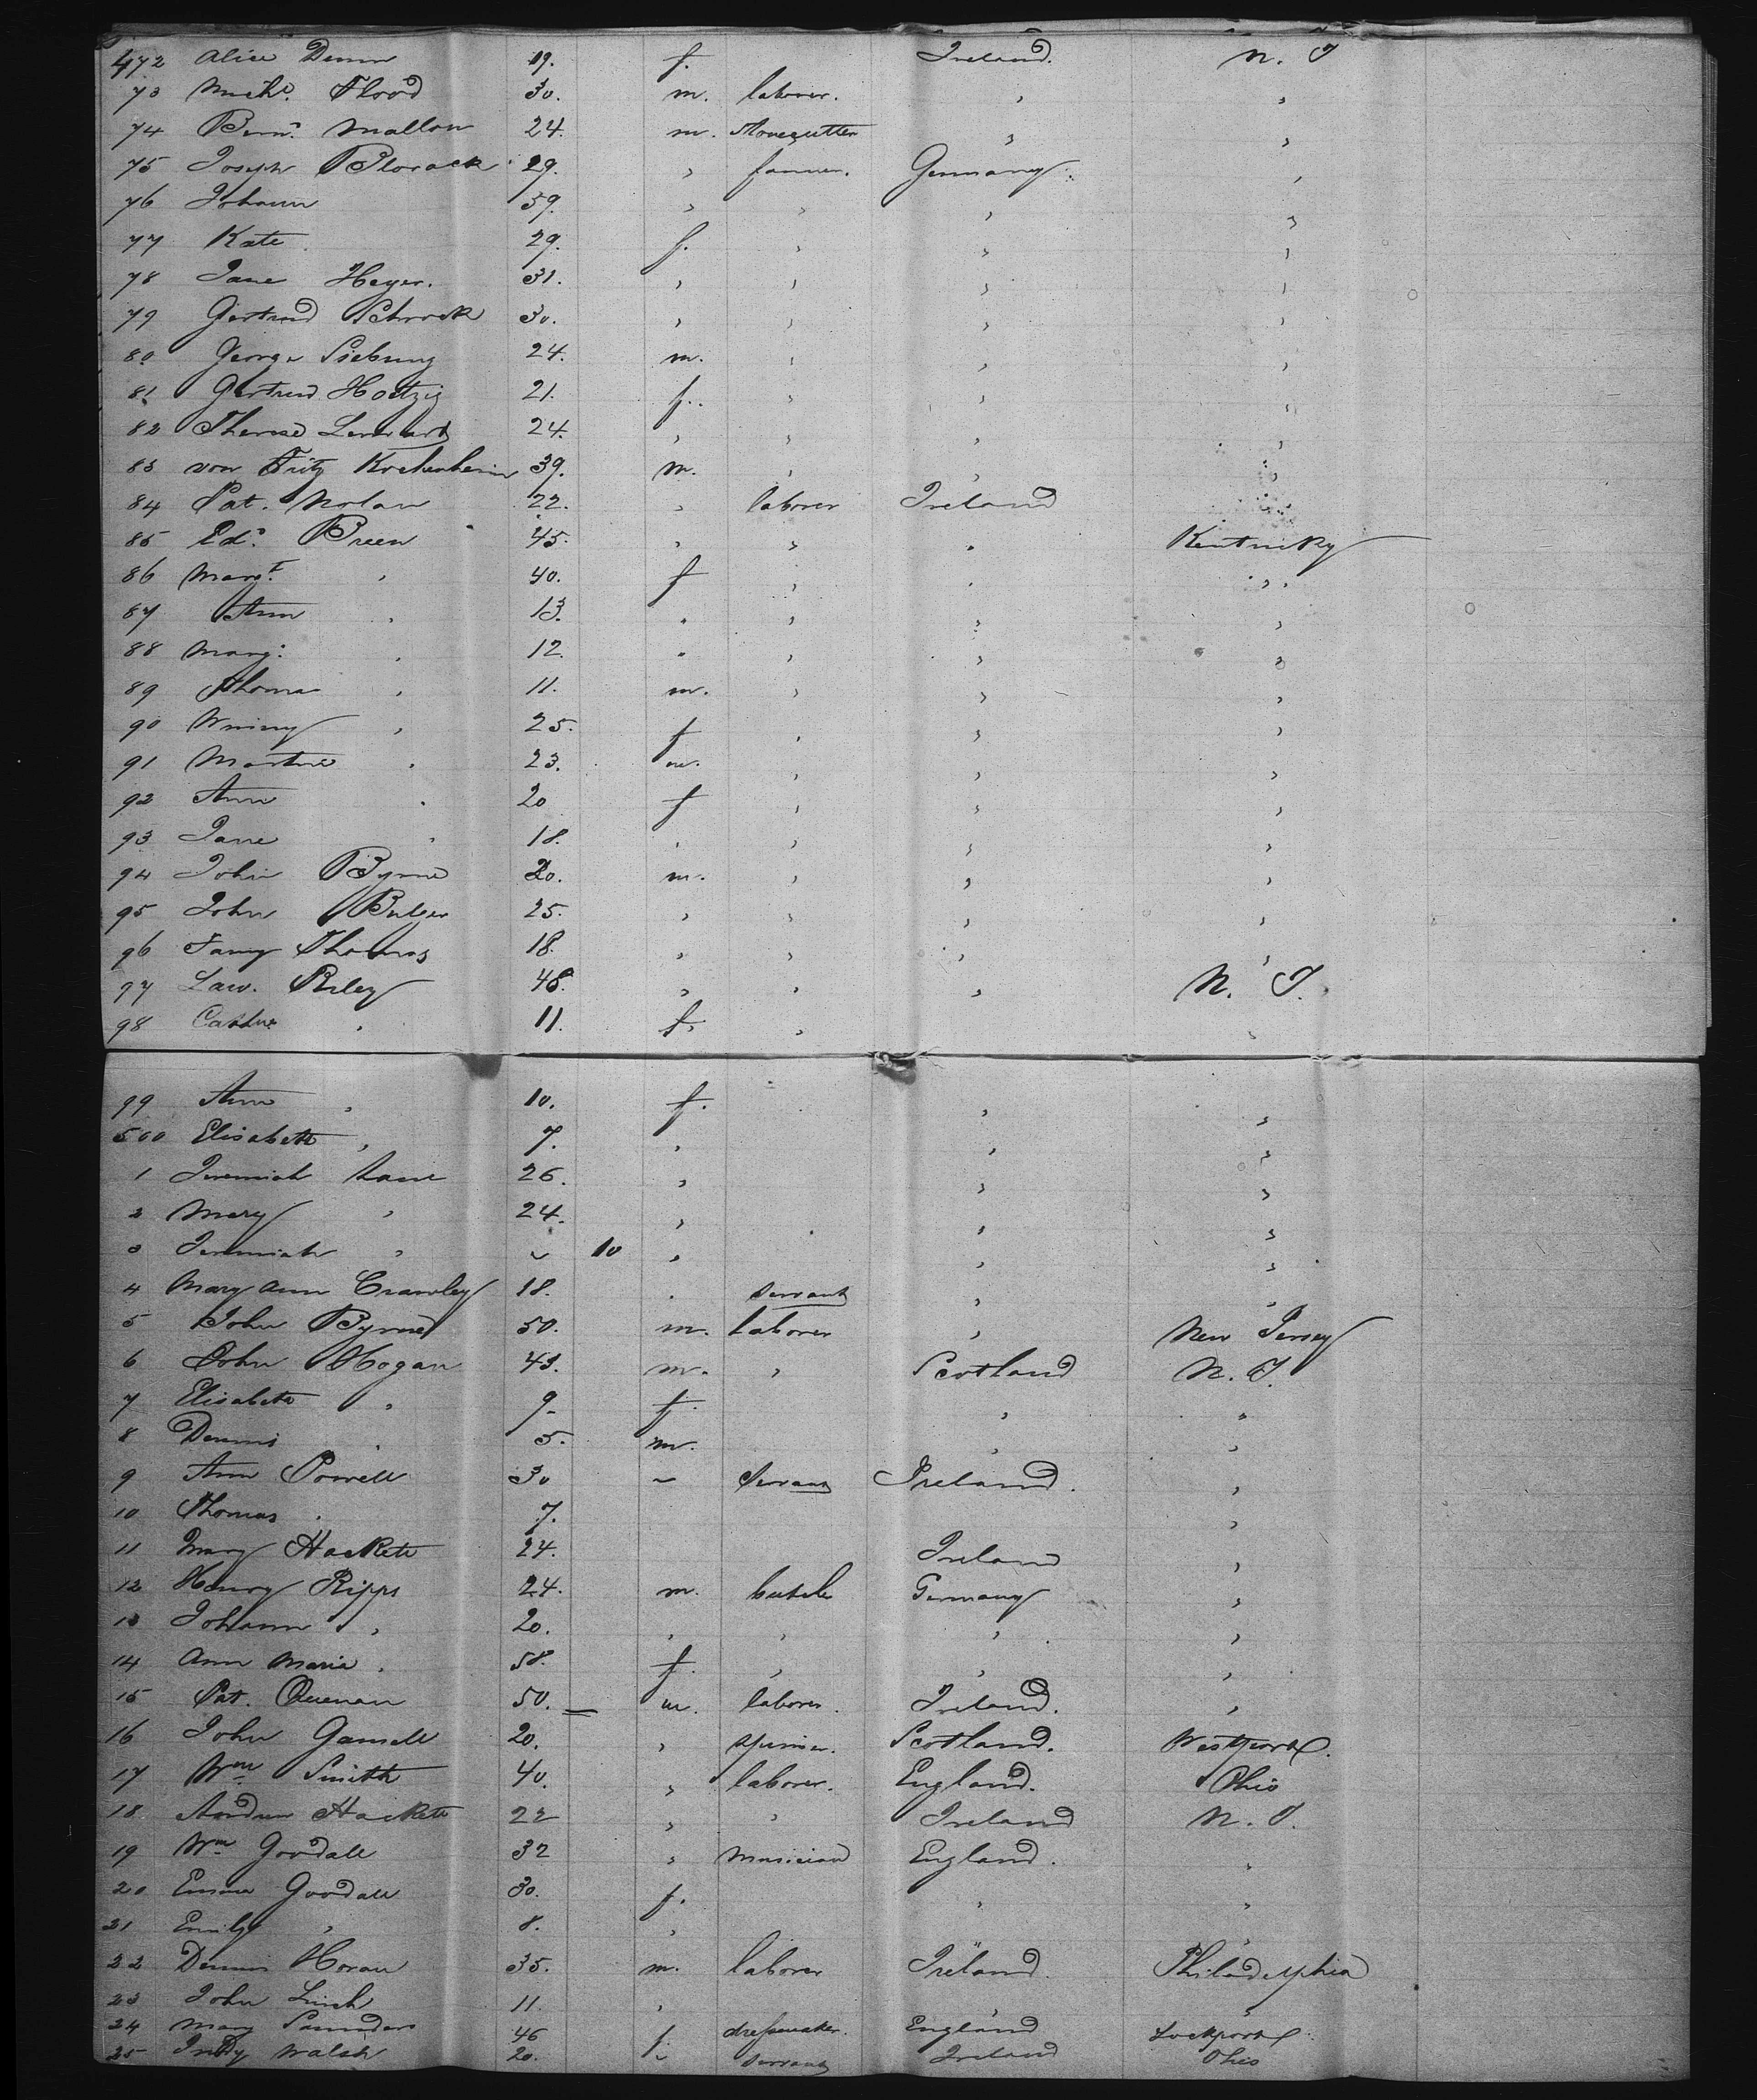 472 Alice Dunn 19. f. Ireland. N. Y
73 Michl. Flood 30. m. laborer. " "
74 Bern. Mallon 24. m. stonecutter " "
75 Joseph 29. " farmer. Germany. "
76 Johann 59. " " " "
77 Kate 29. f. " " "
78 Jane Heyer. 31. " " " "
79 Gertrud Schrock 30. " " " "
80 George Siebung 24. m. " " "
81 Gertrud Hottzig 21. f. " " "
82 Therese 24. " " " "
83 von Fritz 39. m. " " "
84 Pat. Nolan 22. " laborer Ireland "
85 Ed. Breen 45. " " " Kentucky
86 Margt. " 40. f " " "
87 Ann " 13. " " " "
88 Marg: " 12. " " " "
89 Thomas " 11. m. " " "
90 Winny " 25. f " " "
91 Martin " 23. m. " " "
92 Ann " 20 f " " "
93 Jane " 18. " " " "
94 John Byrne 20. m. " " "
95 John Bulger 25. " " " "
96 Fanny Thomas 18. " " " "
97 Law. Riley 48. " " " N. Y.
98 Cathne " 11. f. " "
99 Ann " 10. f. " "
500 Elisabeth " 7. " " "
1 Jeremiah Lane 26. " " "
2 Mary " 24. " " "
3 Jeremiah " ~ 10 " " "
4 Mary Ann Crawley 18. " servant " "
5 John Byrne 50. m. laborer " New Jersey
6 John Hogan 43. m. " Scotland N. Y.
7 Elisabeth " 9- f. " "
8 Dennis " 5. m. " "
9 Ann Powell 30 ~ servant Ireland. "
10 Thomas " 7. "
11 Mary Hackett 24. Ireland "
12 Henry Ripps 24. m. Germany "
13 Johann " 20. " " " "
14 Ann Maria " 58. f. " " "
15 Pat. Quenan 50. m. laborer. Ireland. "
16 John Gamell 20. " spinner. Scotland. Westport.
17 Wm Smith 40. " laborer. England. Ohio
18 Andrew Hackett 22 " " Ireland N. Y.
19 Wm Goodall 32 " musician England. "
20 Emma Goodall 30. f. " "
21 Emily " 8. " "
22 Dennis Horan 35. m. laborer Ireland. Philadelphia
23 John Linch 11. " " "
24 Mary Saunders 46 f. dressmaker. England Lockport.
25 Walsh 20. ~ servant Ireland Ohio